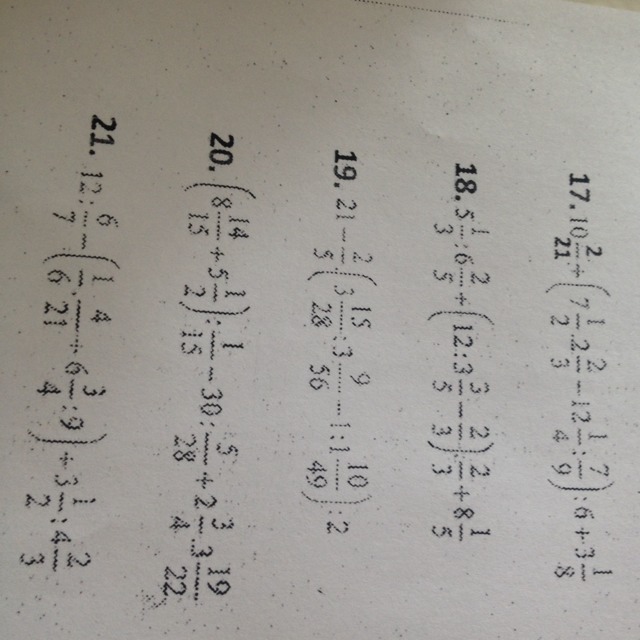 17. 10 2/21 + (7 1/2 · 2 2/3 − 12 1/4 : 7/9) : 6 + 3 1/8
18. 5 1/3 : 6 2/5 + (12 : 3 3/5 − 2/3) : 2/3 + 8 1/5
19. 21 − 2/5 (3 15/28 : 3 9/56 − 1 : 1 10/49) : 2
20. (8 14/15 + 5 1/2) : 1/15 − 30 : 5/28 + 2 3/4 · 3 19/22
21. 12 : 6/7 − (1/6 · 4/21 + 6 3/4 : 9) + 3 1/2 : 4 2/3